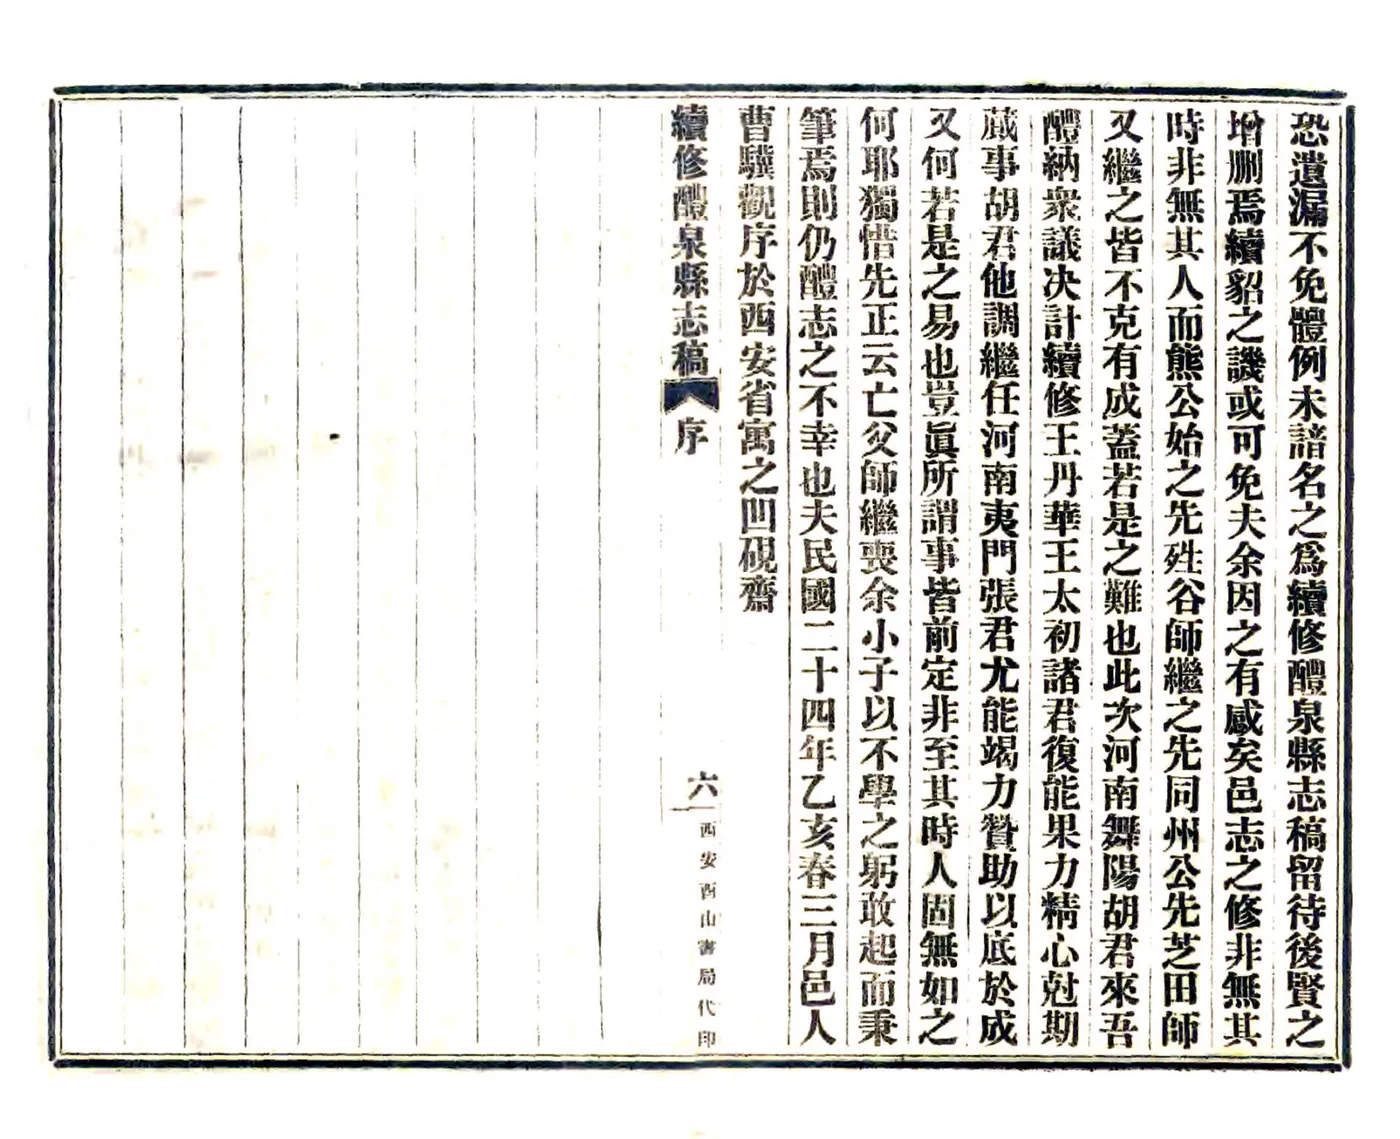 恐遺漏不免體例未諳名之爲續修醴泉縣志稿留待後賢之
增刪焉續貂之譏或可免夫余因之有感矣邑志之修非無其
時非無其人而熊公始之先姓谷師繼之先同州公先芝田師
又繼之皆不克有成蓋若是之難也此次河南舞陽胡君來吾
醴納衆議决計續修王丹華王太初諸君復能果力精心尅期
蕆事胡君他調繼任河南夷門張君尤能竭力贊助以底於成
又何若是之易也豈眞所謂事皆前定非至其時人固無如之
何耶獨惜先正云亡父師繼喪余小子以不學之躬敢起而秉
筆焉則仍醴志之不幸也夫民國二十四年乙亥春三月邑人
曹驥觀序於西安省寓之凹硯齋
續修醴泉縣志稿 序 六 西安酉山書局代印